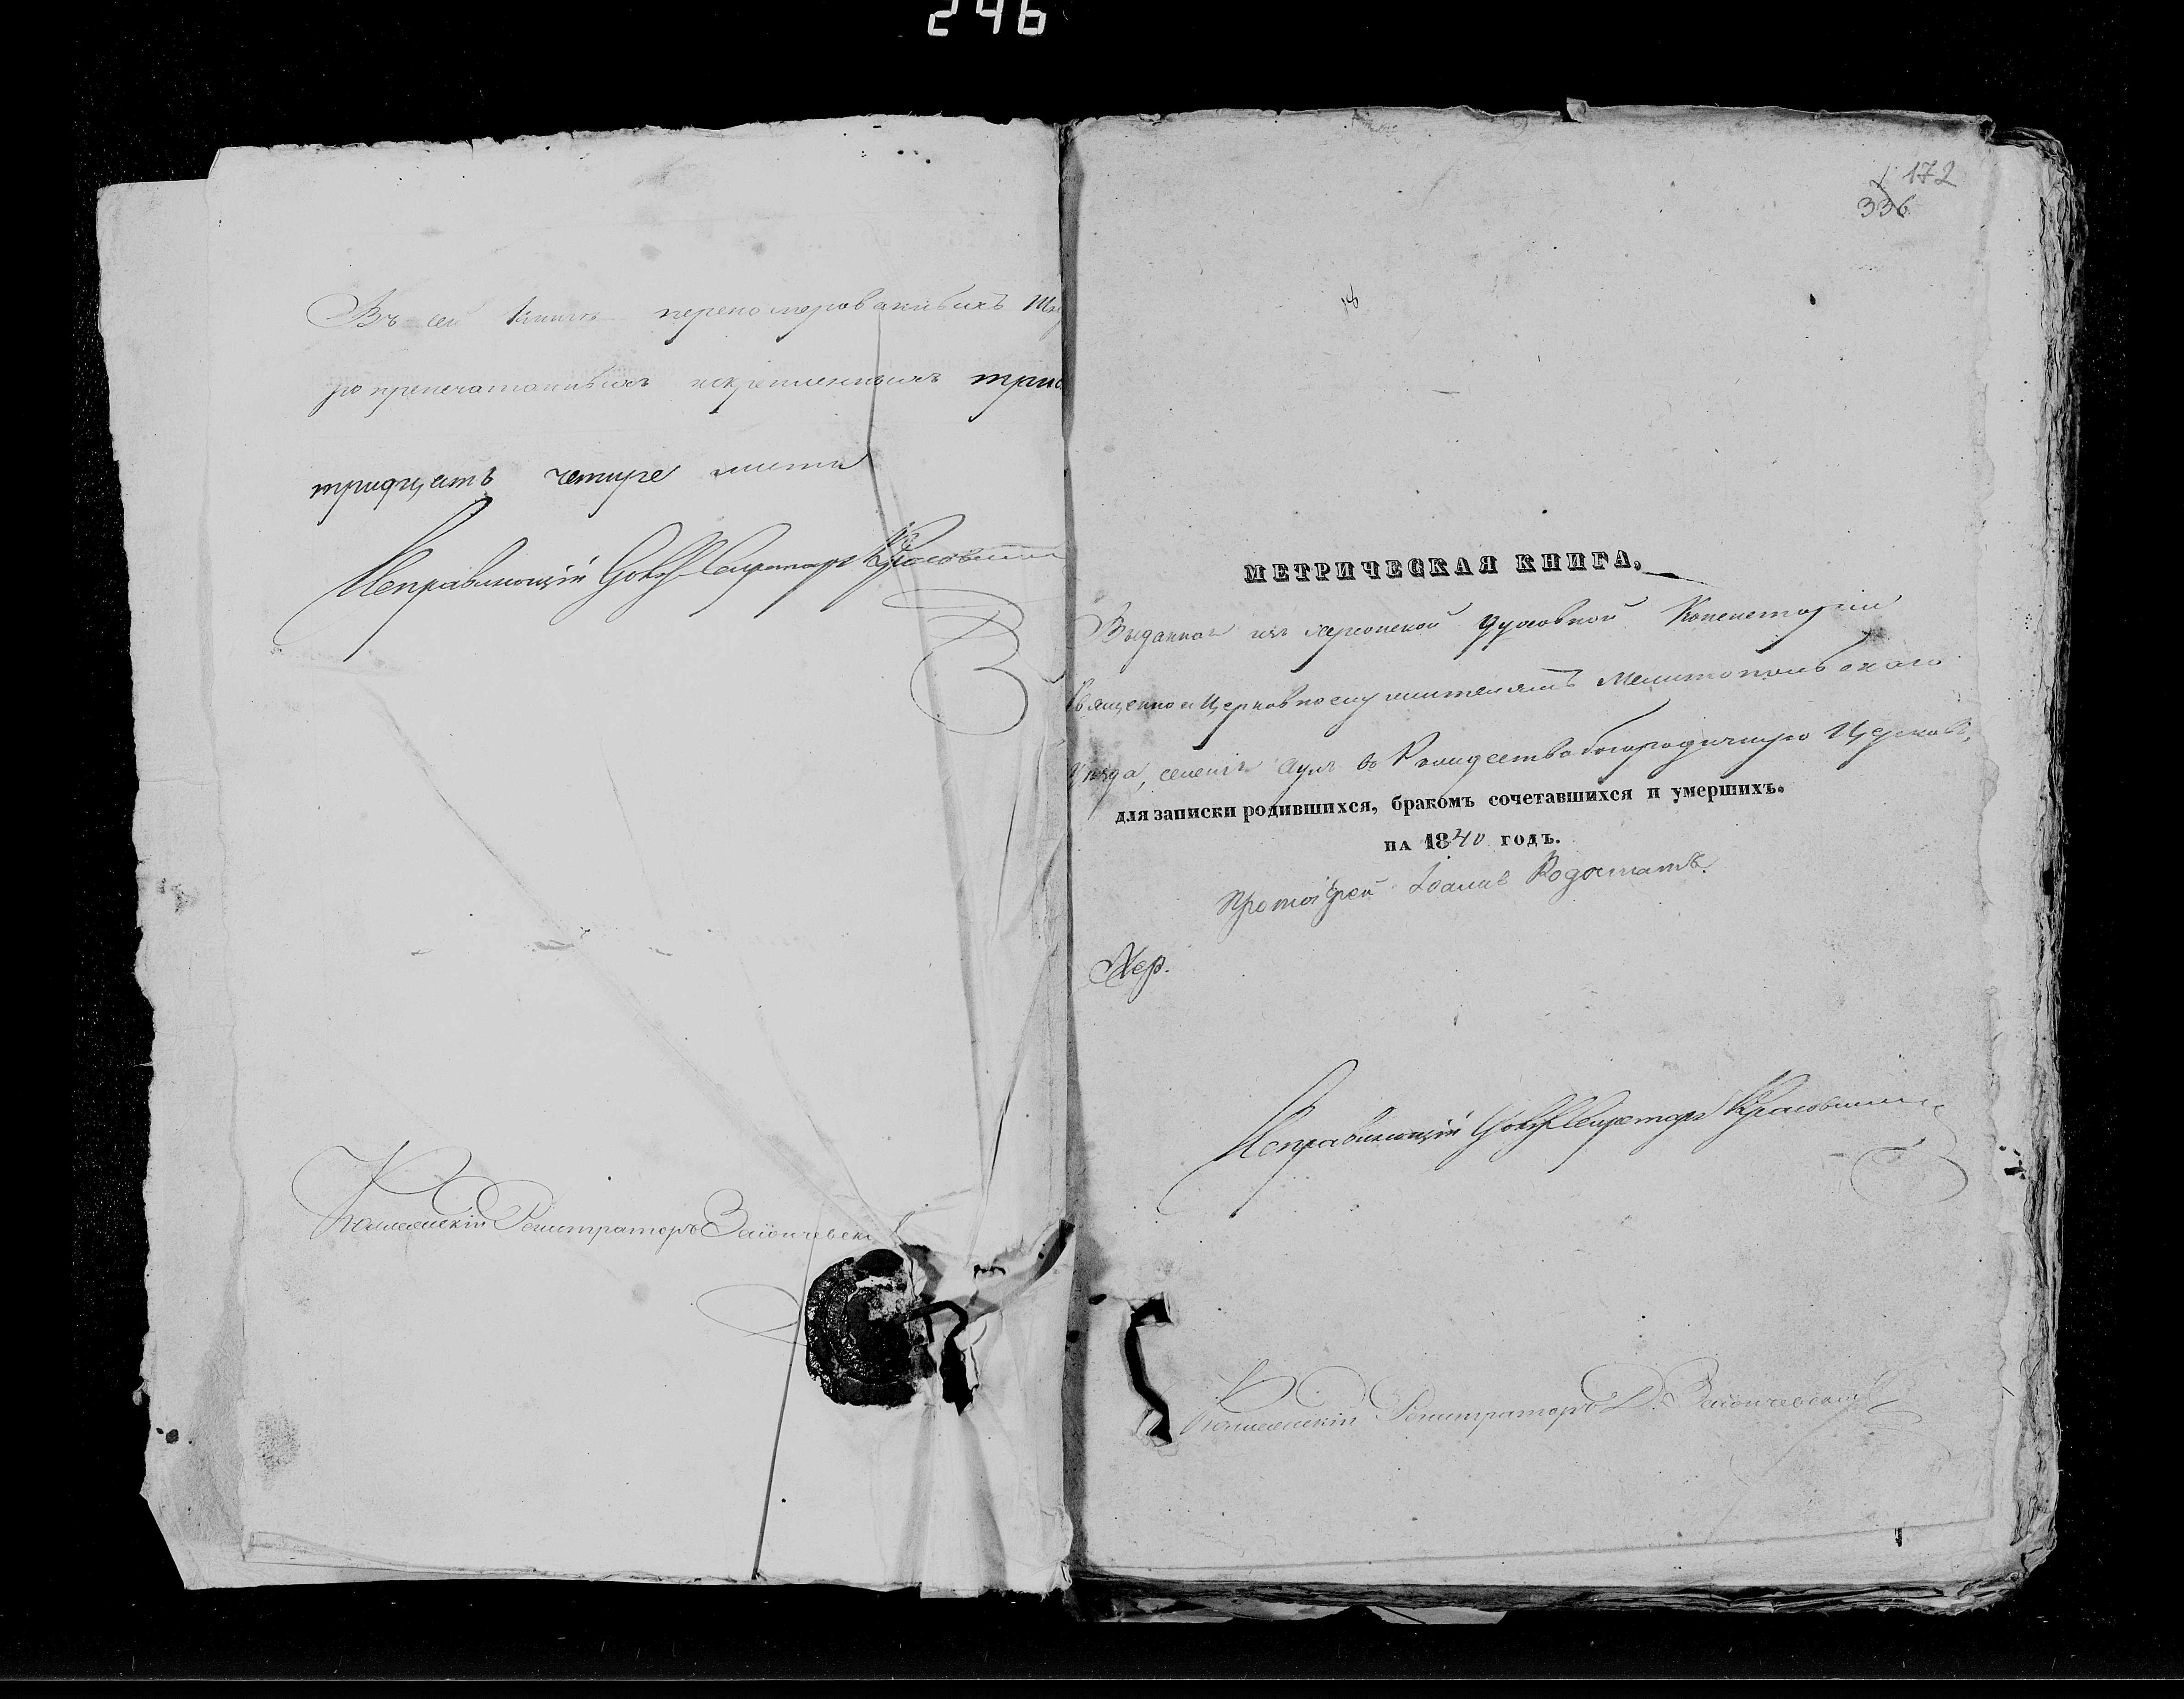 246
Въ сей книгѣ переномерованныхъ Шну
ропрепечатанныхъ искрепленныхъ трис
тридцать четире листа
Исправляющій Секретаря
Коллежскій Регистраторъ Заіончевск
172
336
МЕТРИЧЕСКАЯ КНИГА,
Выданная изъ Херсонской Духовной Консисторіи
Священно и Церковнослужителямъ Мелитопольскаго
Уѣзда, селенія Аулъ въ Рождествобогородичную Церковь,
для записки родившихся, бракомъ сочетавшихся и умершихъ.
на 1840 годъ.
Протоіерей Іоаннъ
Хер.
Исправляющій Секретаря
Коллежскій Регистраторъ Д. Заіончевскій